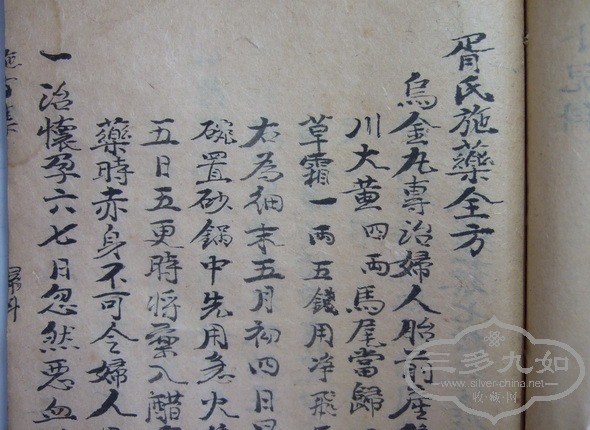 胥氏施藥全方
烏金丸專治婦人胎前產
川大黃四兩馬尾當歸
草霜一兩五錢用净飛
右為細末五月初四日
碗置砂鍋中先用急火
五日五更時將藥入醋
藥時赤身不可令婦人
一治懷孕六七月忽然惡血
三多九如
www.silver-china.net
收藏网